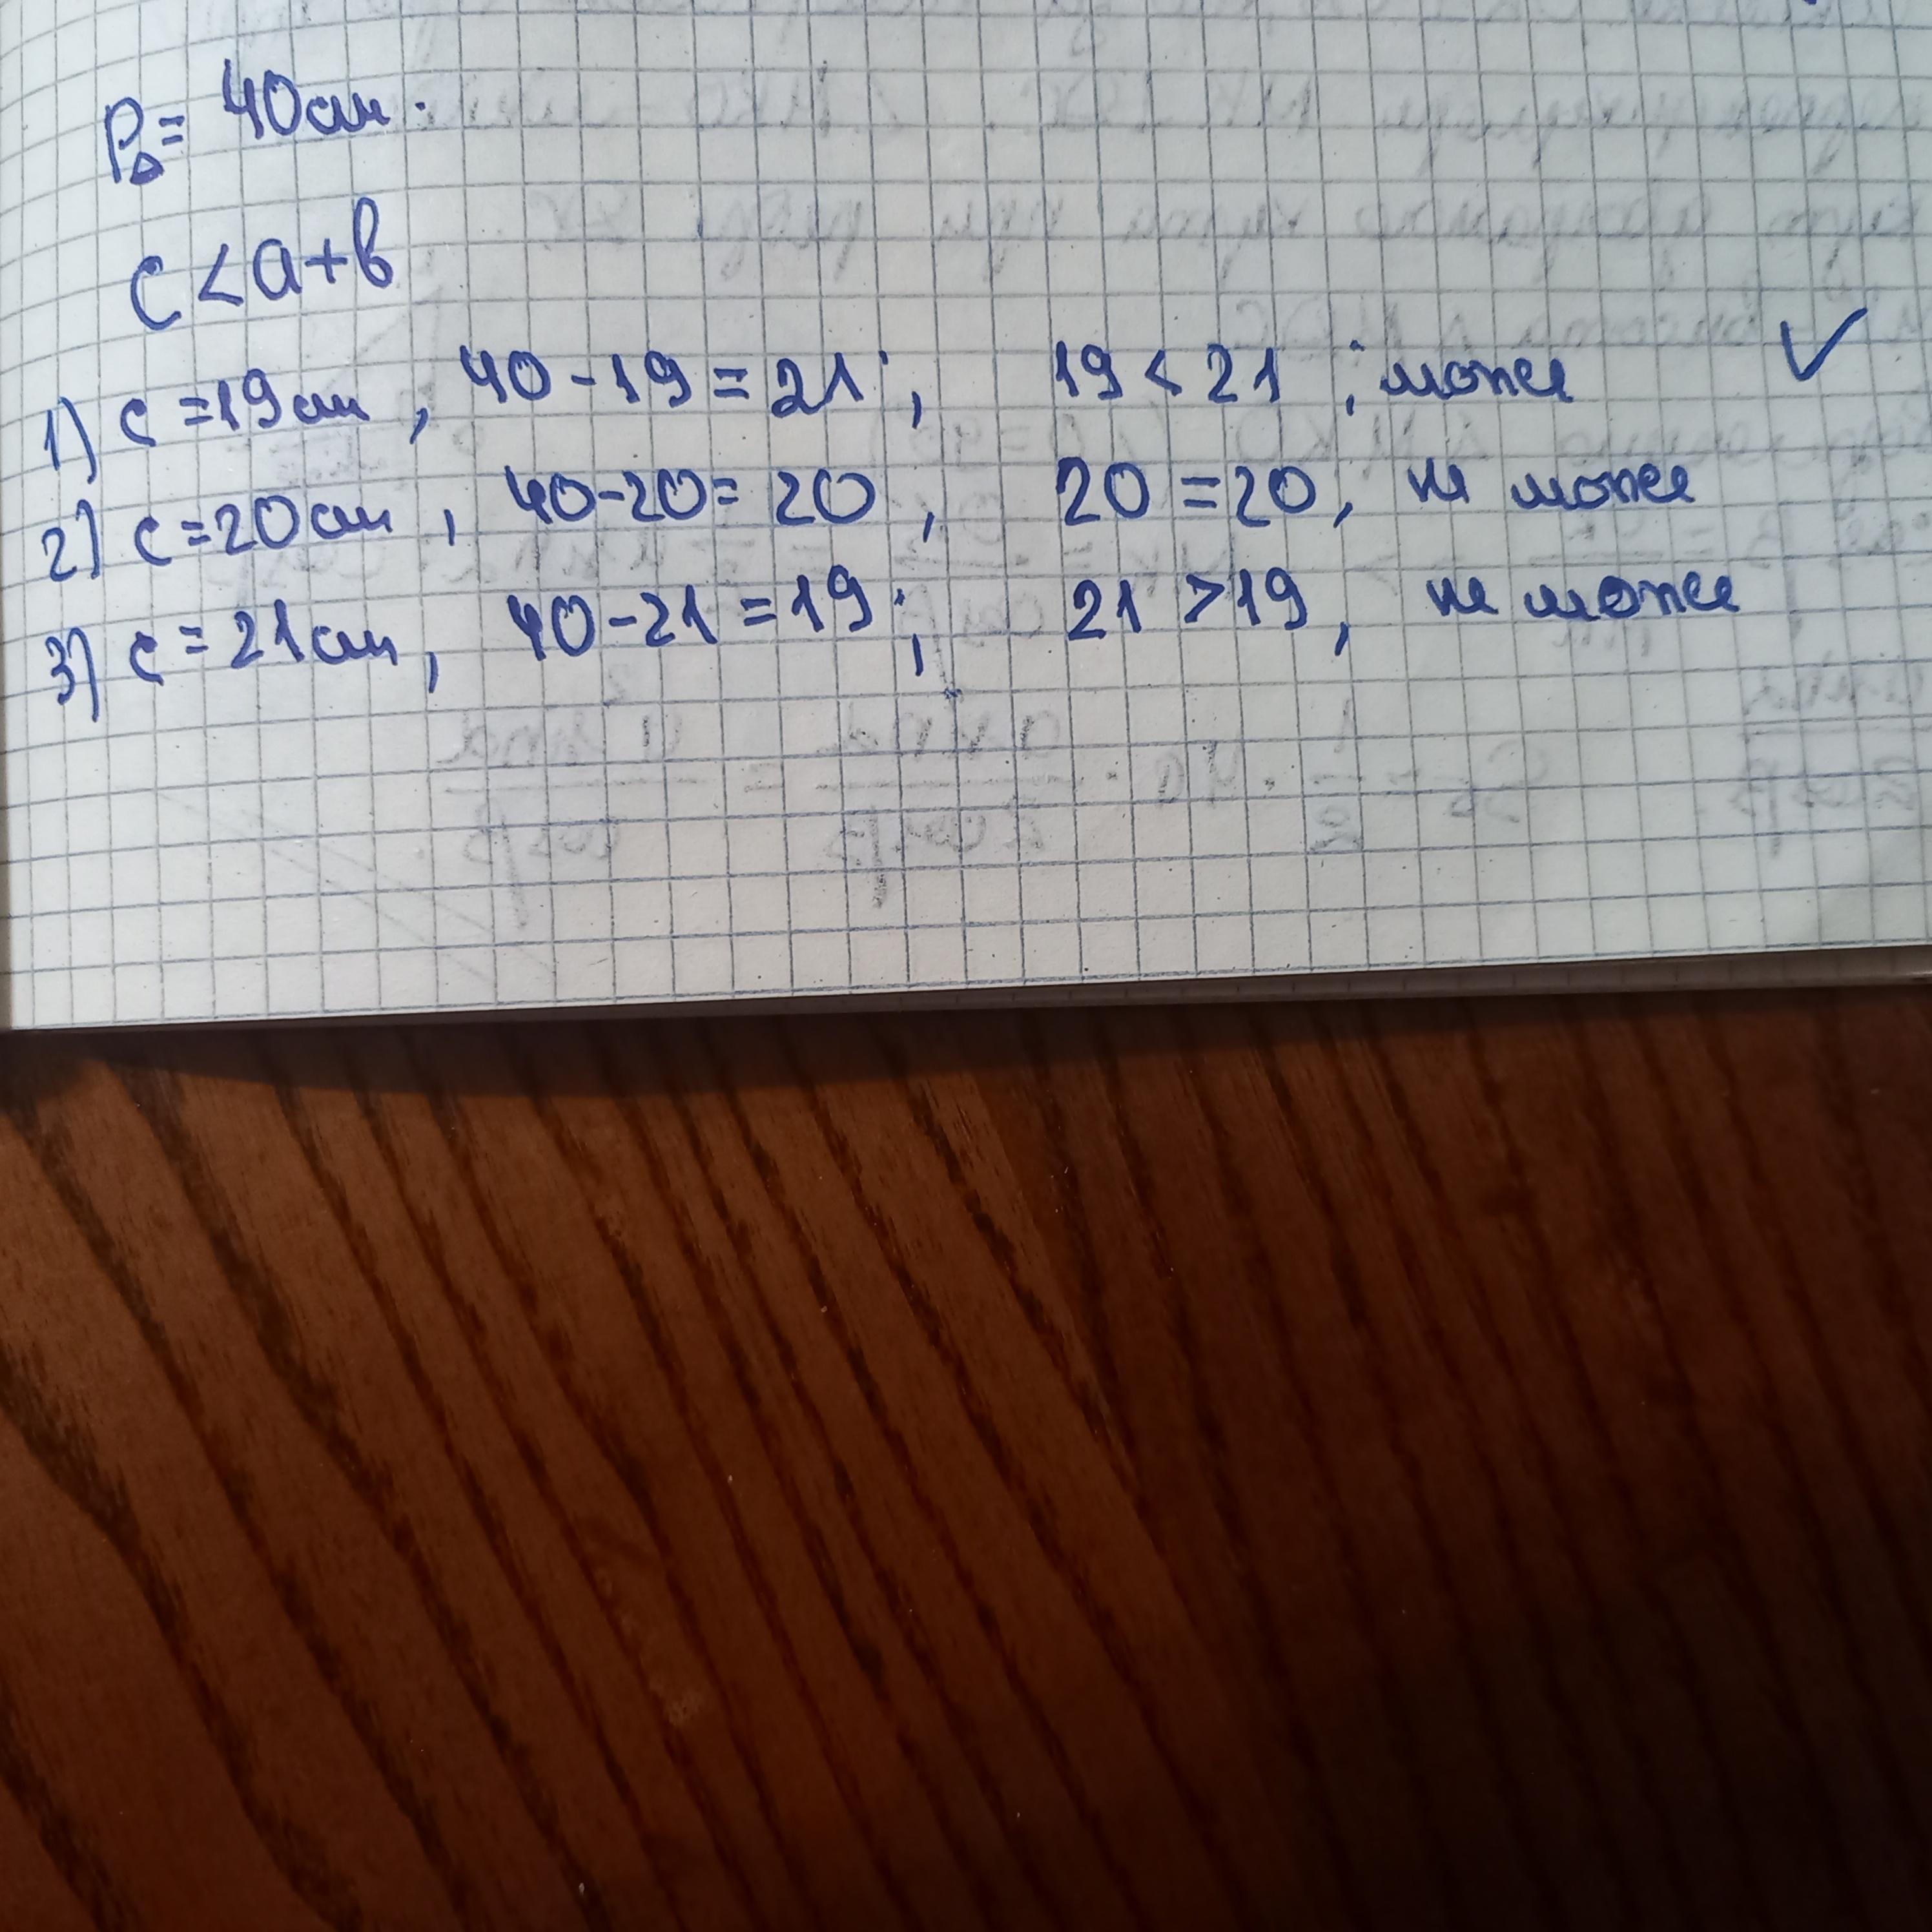 P△ = 40см.
c < a+b
1) c = 19см, 40-19 = 21; 19 < 21; може ✓
2) c = 20см, 40-20 = 20, 20 = 20, не може
3) c = 21см, 40-21 = 19; 21 > 19, не може